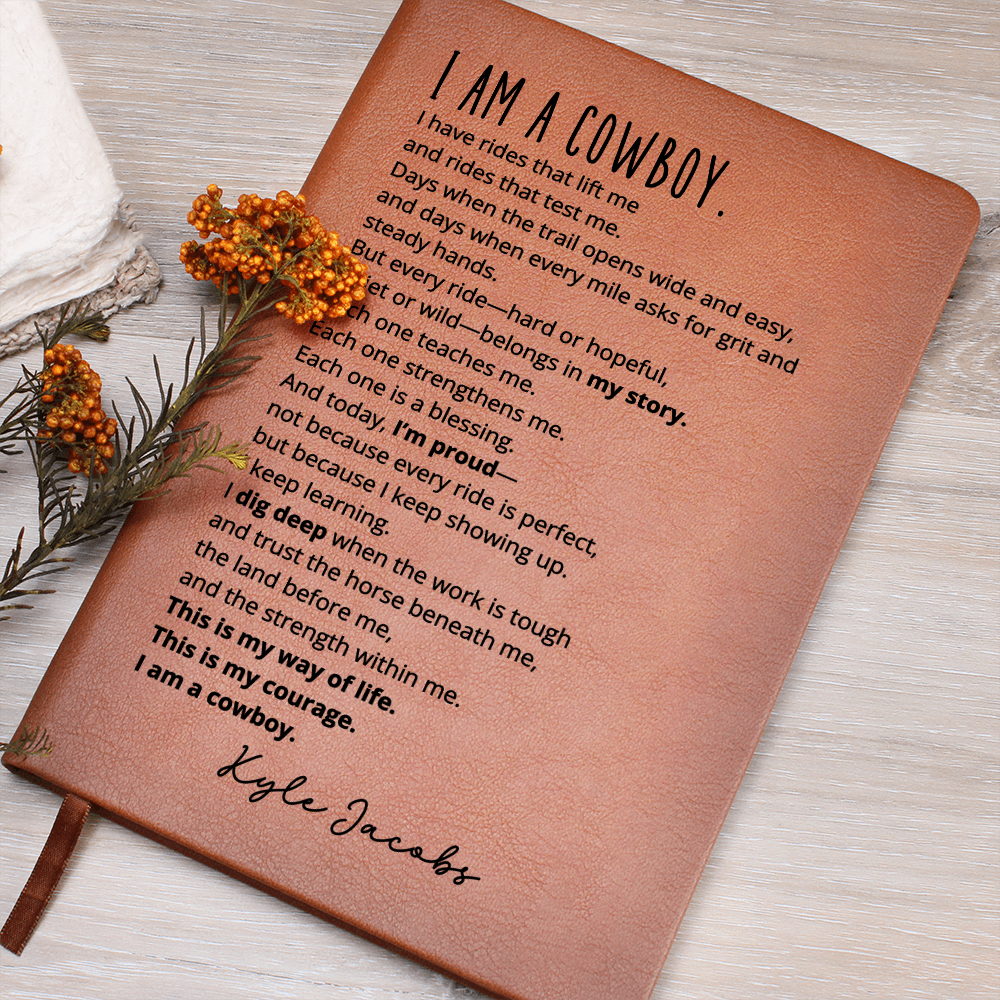 I AM A COWBOY.
I have rides that lift me
and rides that test me.
Days when the trail opens wide and easy,
and days when every mile asks for grit and
steady hands.
But every ride—hard or hopeful,
et or wild—belongs in my story.
ch one teaches me.
Each one strengthens me.
Each one is a blessing.
And today, I'm proud—
not because every ride is perfect,
but because I keep showing up.
keep learning.
I dig deep when the work is tough
and trust the horse beneath me,
the land before me,
and the strength within me.
This is my way of life.
This is my courage.
I am a cowboy.
Kyle Jacobs